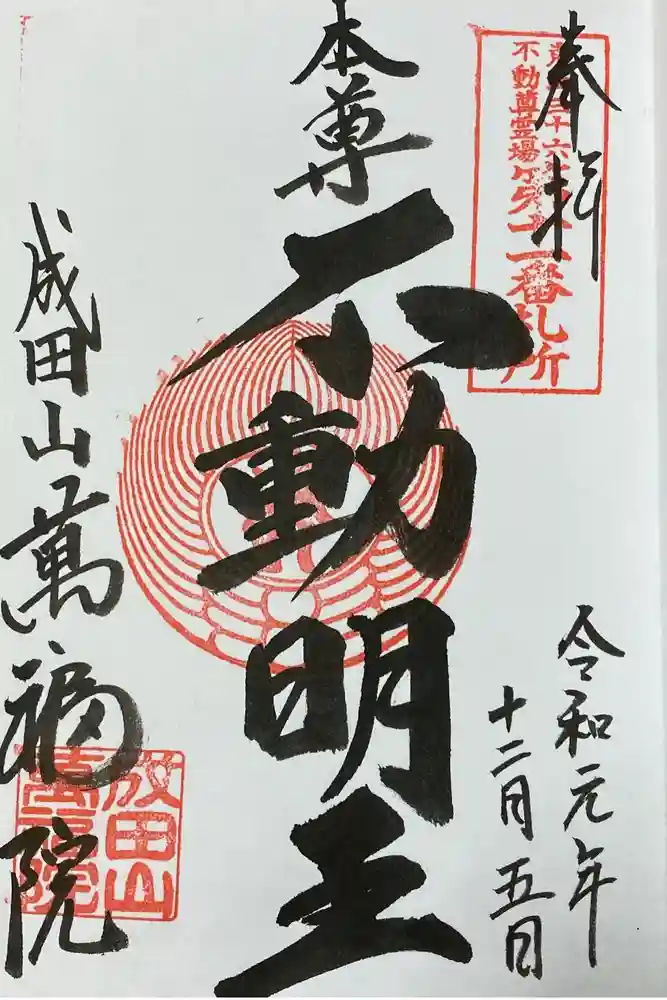 奉拝
不動尊霊場
番札所
令和元年
十二月五日
本尊
不動明王
成田山萬福院
成田山
萬福院